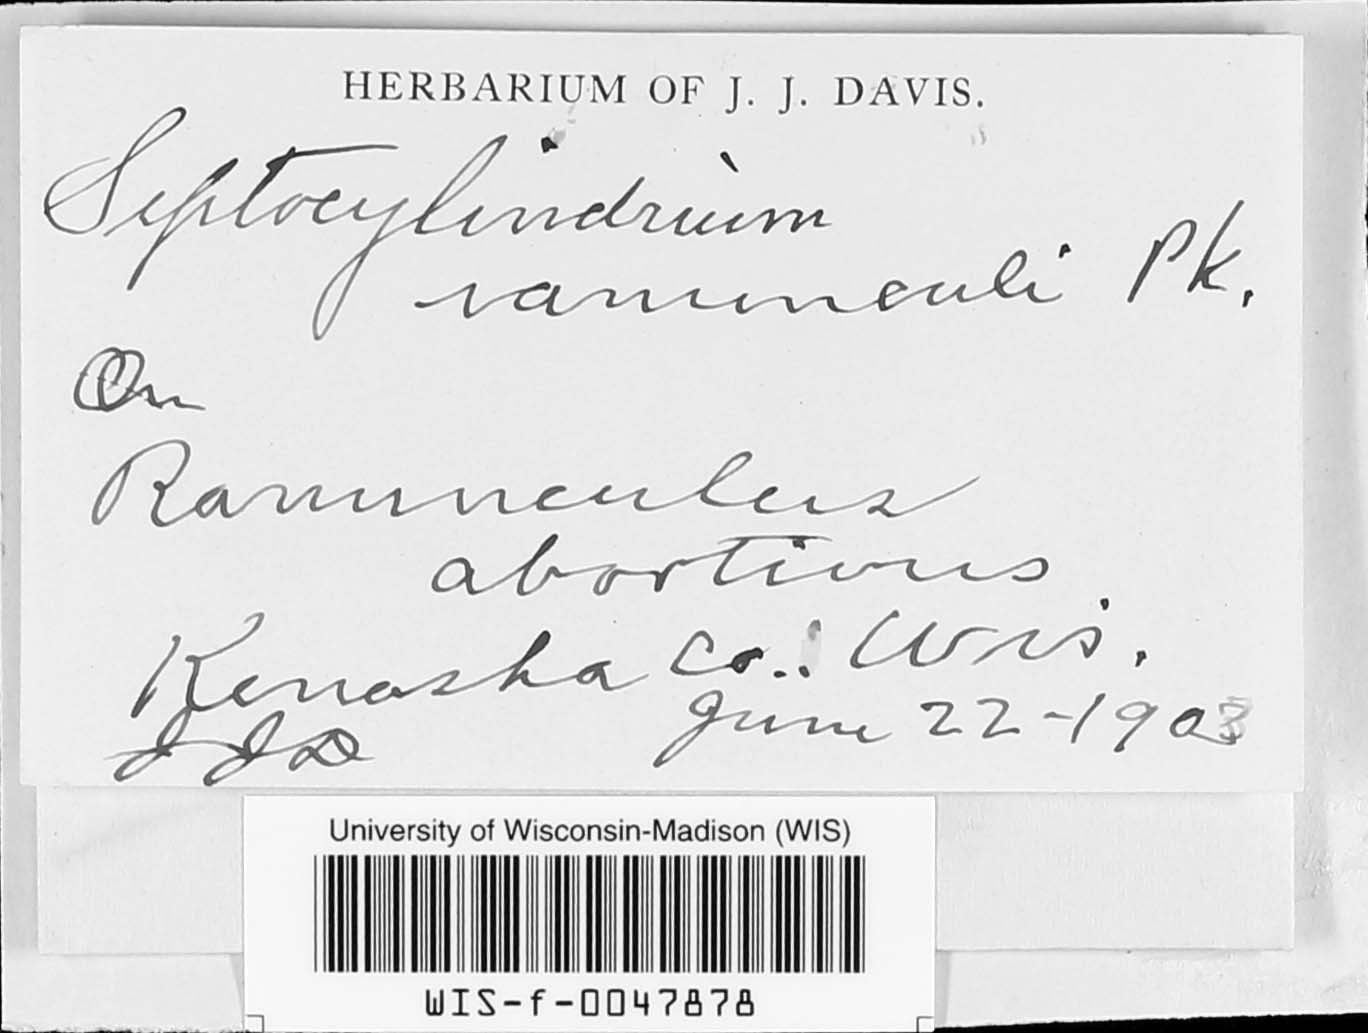 HERBARIUM OF J. J. DAVIS.
Septocylindrium
ranunculi Pk.
On
Ranunculus
abortivus
Kenosha Co.: Wis.
JJD June 22-1903
University of Wisconsin-Madison (WIS)
WIS-f-0047878